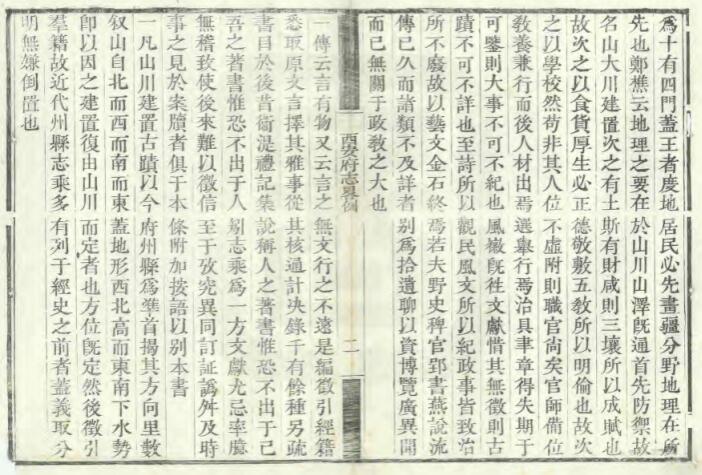 為十有四門蓋王者度地居民必先畫疆分野地理在所
先也鄭樵云地理之要在於山川山澤旣通首先防禦故
名山大川建置次之有土斯有財咸則三壤所以成賦也
故次之以食貨厚生必正德敬敷五敎所以明倫也故次
之以學校然苟非其人位不虛附則職官尚矣官師備位
敎養兼行而後人材出焉選舉行焉治具畢章得失期于
可鑒則大事不可不紀也風徽旣往文獻惜其無徵則古
蹟不可不詳也至詩所以觀民風文所以紀政事皆致治
所不廢故以藝文金石終焉若夫野史稗官郢書燕說流
傳已久而諸類不及詳者別爲拾遺聊以資博覽廣異聞
而已無關于政敎之大也
西安府志 凡例 二
一傳云言有物又云言之無文行之不遠是編徵引經籍
悉取原文言擇其雅事從其核通計決錄千有餘種另疏
書目於後昔衛湜禮記集說稱人之著書惟恐不出于己
吾之著書惟恐不出于人矧志乘爲一方文獻尤忌率臆
無稽致使後來難以徵信至于攷究異同訂証譌舛及時
事之見於案牘者俱于本條附加按語以別本書
一凡山川建置古蹟以今府州縣爲準首揭其方向里數
叙山自北而西而南而東蓋地形西北高而東南下水勢
卽以因之建置復由山川而定者也方位旣定然後徵引
羣籍故近代州縣志乘多有列于經史之前者蓋義取分
明無嫌倒置也